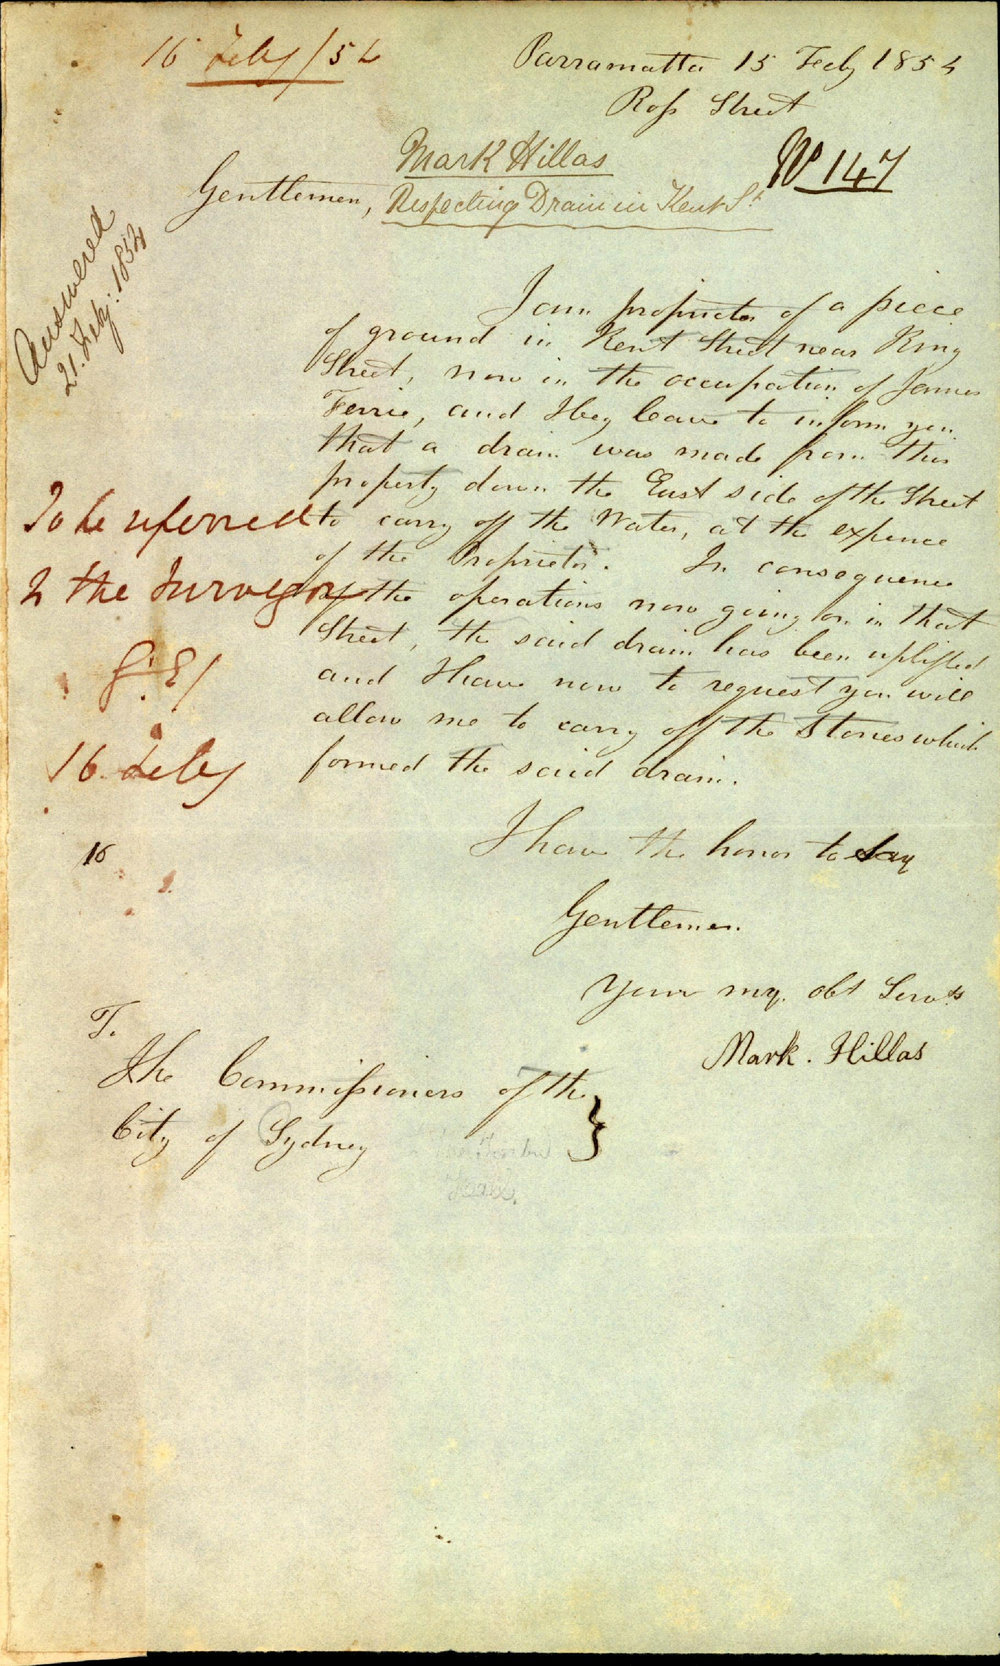 16 Feby /54
Parramatta 15 Feby 1854
Ross Street
Mark Hillas
No 147
Gentlemen,
Respecting Drain in Kent St
Answered
21. Feby: 1854
I am proprietor of a piece
of ground in Kent Street near King
Street, now in the occupation of James
Ferrie, and I beg leave to inform you
that a drain was made from this
property down the East side of the Street
to carry off the Water, at the expence
of the Proprietor. In consequence
of the operations now going on in that
Street, the said drain has been uplifted
and I have now to request you will
allow me to carry off the Stones which
formed the said drain.
To be referred
to the Surveyor
G. E/
16 Feby
16
I have the honor to say
Gentlemen.
Your my. obt Servts
Mark. Hillas
To
The Commissioners of the
City of Sydney